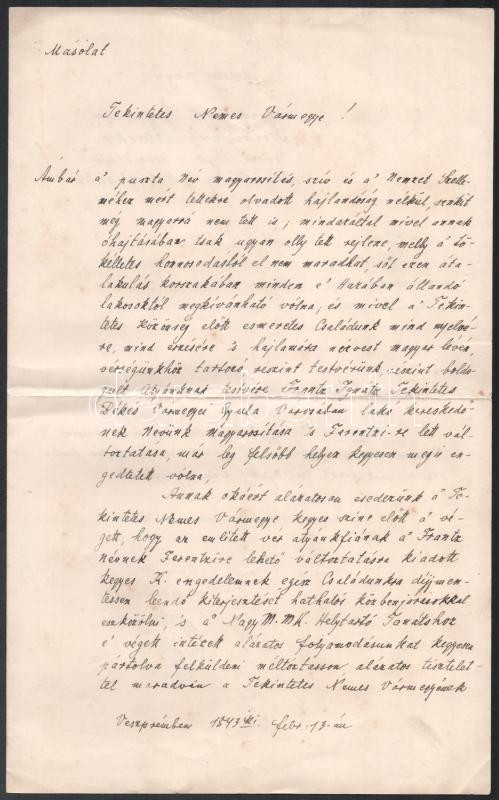 Másolat
Tekintetes Nemes Vármegye!
Ámbár a' puszta Név magyarosítás, szív és a' Nemzet Szelle-
méhez mért lelkekre olvadott hajlandóság nélkül, senkit
még magyarrá nem tett is; mindazáltal mivel annak
óhajtásában tsak ugyan olly tett rejlene, melly a' tö-
kelletes honnosodástól el nem maradhat, sőt ezen áta-
lakulás korszakában minden é Hazában állandó
lakosoktól megkivánható vólna, és mivel a' Tekin-
tetes Közönség előtt esmeretes Családunk mind nyelvé-
re, mind érzésére 's hajlamára nézvest magyar lévén,
vérségünkhöz tartozó részint testvérünk, részint boldo-
gult Atyánknak testvére Frantz Ignátz Tekintetes
Békés Vármegyei Gyula Városában lakó kereskedő-
nek Nevünk magyarosítása 's Ferentzi-re lett vál-
toztatása, már leg felsőbb helyen kegyesen megis en-
gedtetett vólna,
Annak okáért alázatosan esedezünk a' Te-
kintetes Nemes Vármegye kegyes szine előtt a' vé-
gett, hogy az emlitett vér atyánkfiának a' Frantz
névnek Ferentzire lehető változtatásra kiadott
kegyes K. engedelemnek egész Családunkra díjmen-
tessen leendő kiterjesztését hathatós közbenjárásokkal
eszközölni, 's a' Nagy M. MK. Helytartó Tanátshoz
é végett intézett alázatos folyamodásunkat kegyesen
pártolva felküldeni méltóztasson alázatos tisztelet-
tel maradván a Tekintetes Nemes Vármegyének
Veszprémben 1843 iki febr. 13-án